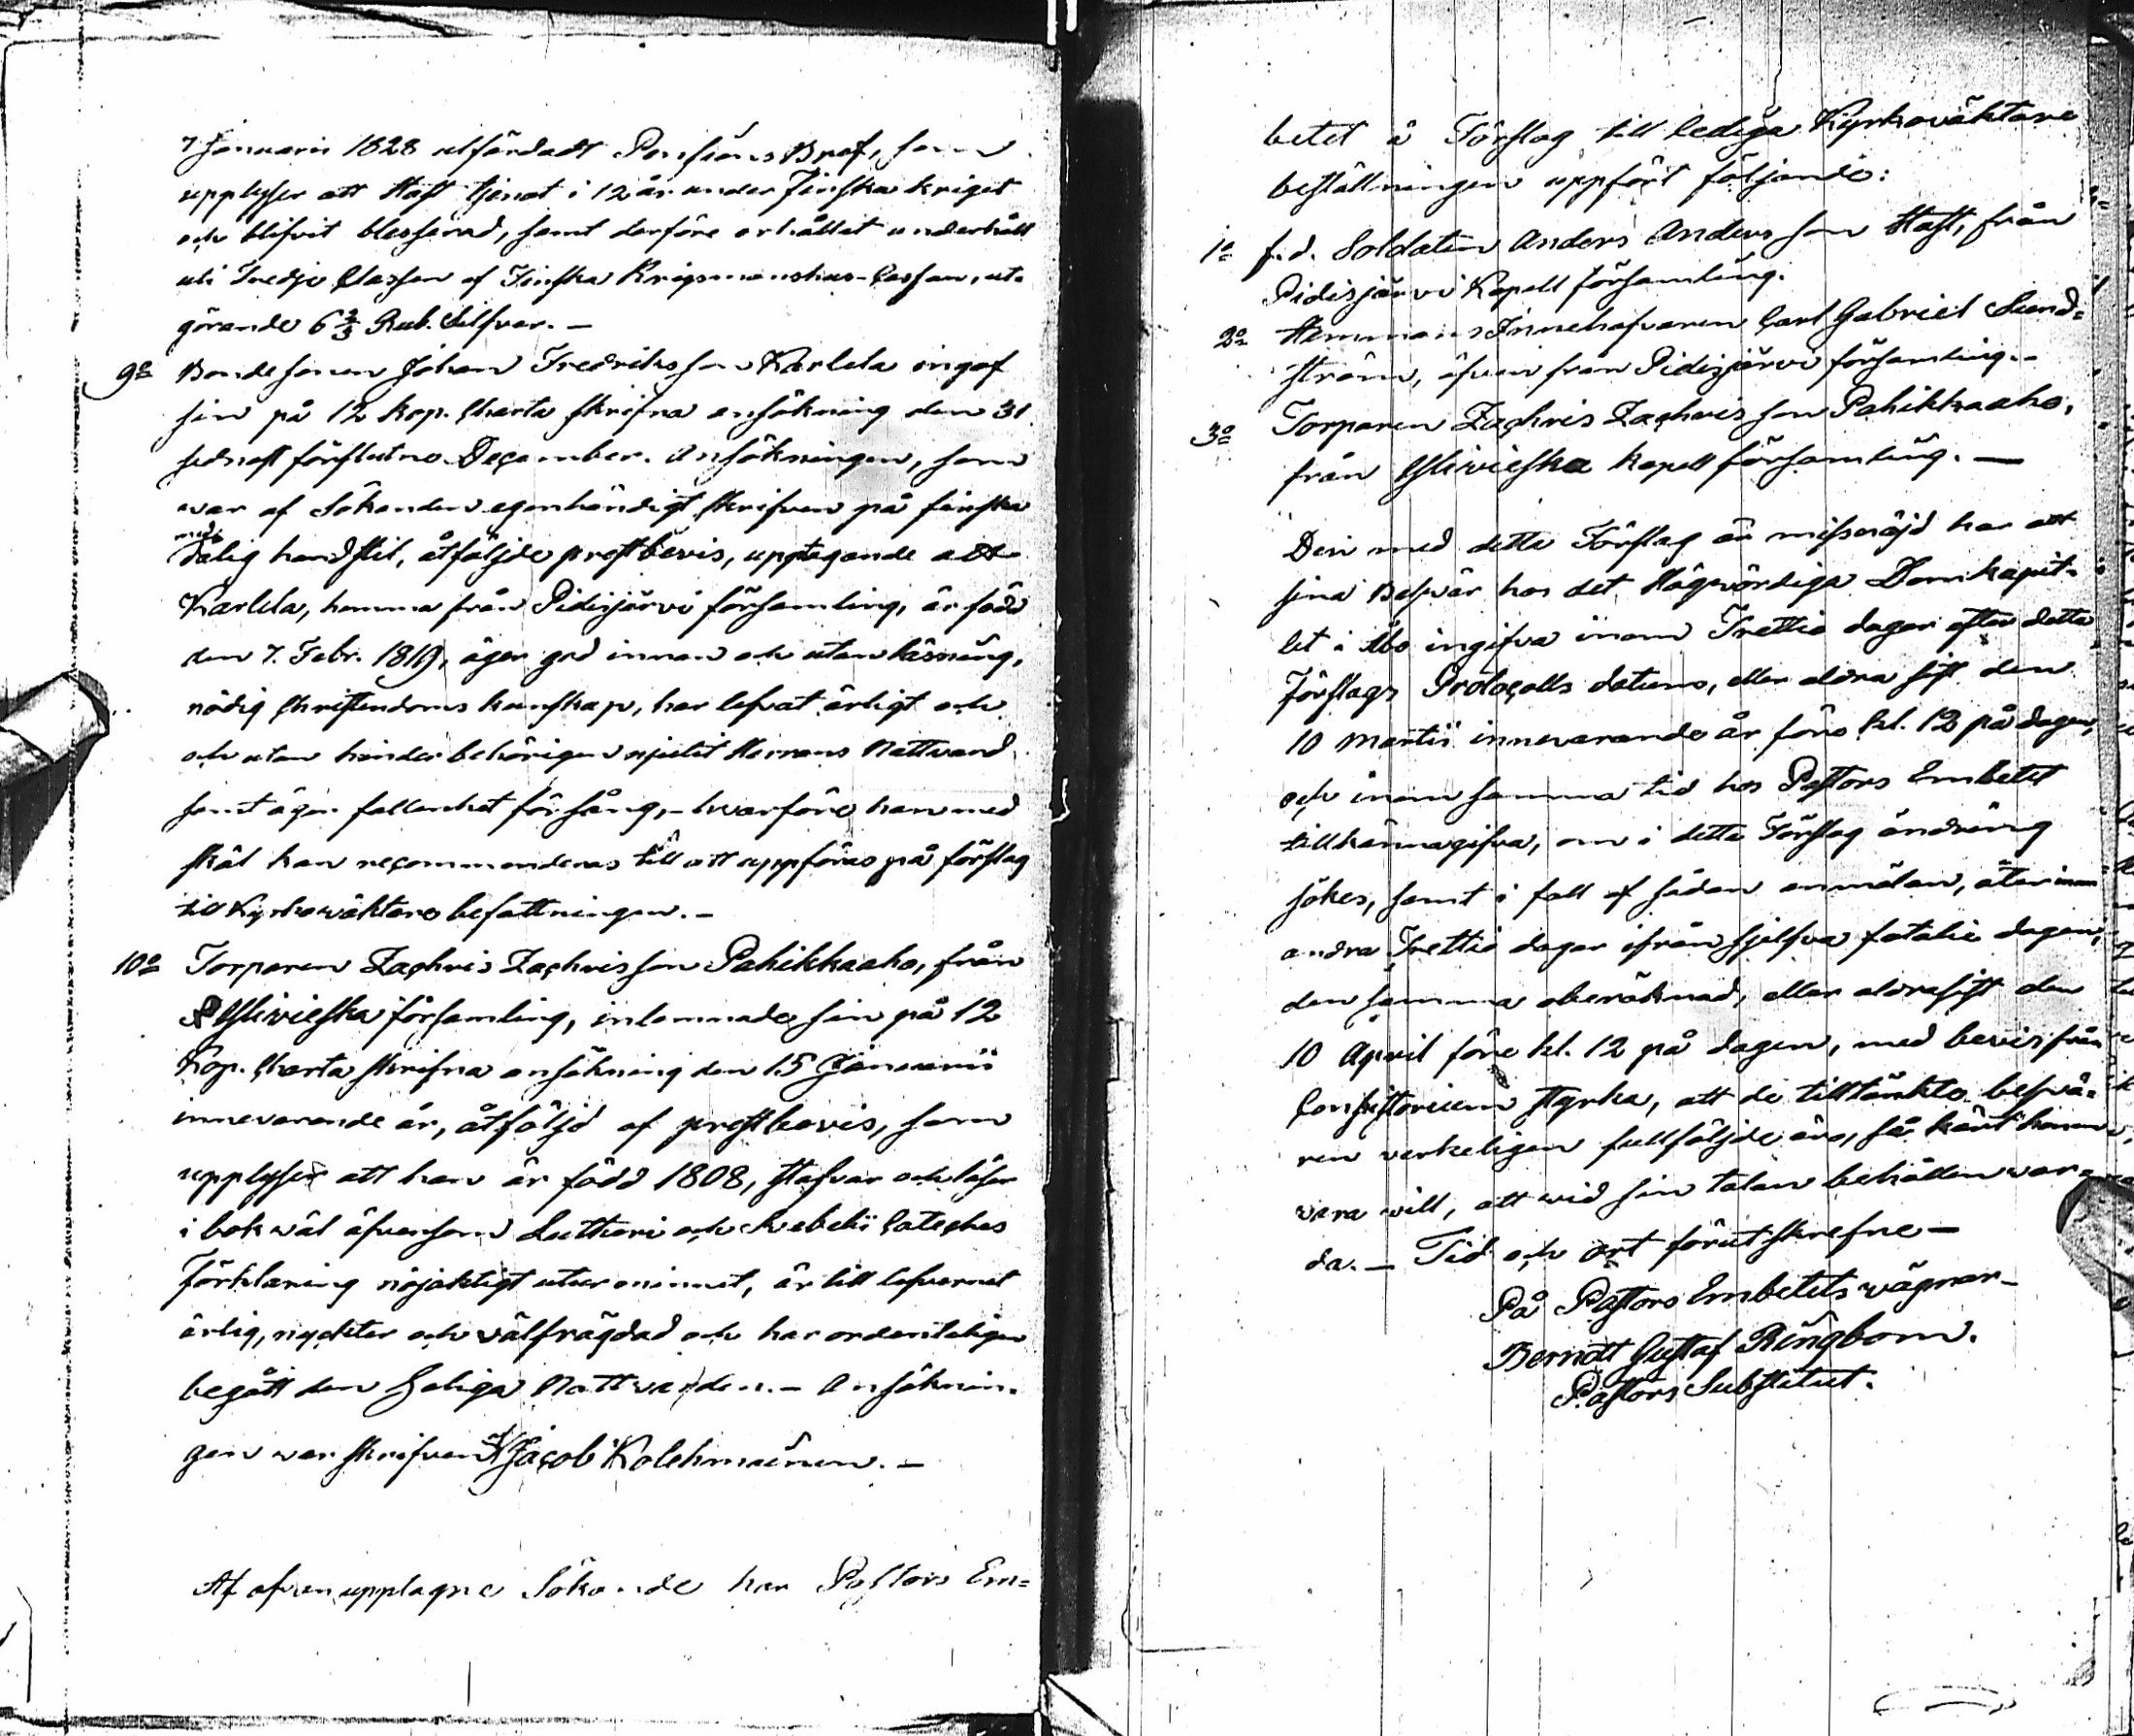 7 Januarii 1828 utfärdadt Pensions Bref, som
upplyser att Haft tjenat i 12 år under Finska kriget
och blifvit blesserad, samt derföre erhållit underhåll
uti Tredje Classen af Finska Krigsmanshus-Cassan, ut-
görande 6 2/3 Rub. Silfver. —
9o Bondesonen Johan Fredriksson Karlela ingaf
sin på 12 kop. Charta skrifna ansökning den 31
sednast förflutne December. Ansökningen, som
war af Sökanden egenhändigt skrifven på finska
med
dålig handstil, åtföljde prestbevis, upptagande att
Karlela, hemma från Pidisjärvi församling, är född
den 7. Febr. 1819, äger god innan och utan läsning,
nödig Christendoms kunskap, har lefvat ärligt och
och utan hinder behörigen njutit Herrans Nattvard
samt äger fallenhet för sång, – hvarföre han med
skäl kan recommenderas till att uppföras på förslag
till Kyrkowäktare befattningen. –
10o Torparen Zachris Zachrisson Pahikkaaho, från
Yliwieska församling, inlemnade sin på 12
Kop. Charta skrifna ansökning den 15 Januarii
innevarande år, åtföljd af prestbevis, som
upplyser att han är född 1808, stafvar och läser
i bok wäl äfvensom Lutheri och Swebelii Cateches
Förklaring nöjaktigt utur minnet, är till lefvernet
ärlig, nyckter och välfrägdad och har ordenteligen
begått den Heliga Nattvarden. – Ansöknin-
gen war skrifven af Jacob Kolehmainen. –
Af ofvan upptagne Sökande har Pastors Em=
betet å Förslag till lediga Kyrkoväktare
beställningen uppfört följande:
1o f. d. Soldaten Anders Andersson Haft, från
Pidisjärvi Kapell församling.
2o Hemmans Innehafvaren Carl Gabriel Lund=
ström, äfven från Pidisjärvi församling. –
3o Torparen Zachris Zachrisson Pahikkaaho,
från Yliwieska kapell församling. —
Den med detta Förslag är missnöjd har att
sina Besvär hos det Högwördiga Domkapit-
let i Åbo ingifva inom Trettio dagar efter detta
Förslags Protocolls datum, eller aldra sist den
10 Martii innevarande år före kl. 12 på dagen,
och inom samma tid hos Pastors Embetet
tillkännagifva, om i detta Förslag ändring
sökes, samt i fall af sådan anmälan, åter inom
andra Trettio dagar ifrån sjelfva fatalie dagen,
den samma oberäknad, eller aldrasist den
10 April före kl. 12 på dagen, med bevis från
Consistorium styrka, att de tilltänkte besvä-
ren verkeligen fullföljde äro, så kärt honom
vara will, att wid sin talan behållen war=
da. — Tid och ort förutskrefne —
På Pastors Embetets wägnar –
Berndt Gustaf Ringbom.
Pastors Substitut.